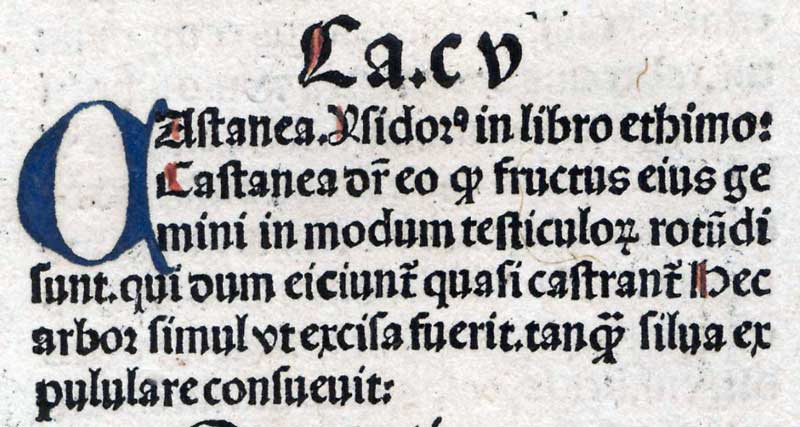 Ca.cv
CAstanea. Ysidorꝰ in libro ethimo:
Castanea dr̄ eo ꝙ fructus eius ge
mini in modum testiculoꝝ rotūdi
sunt. qui dum eiciunt̄ quasi castrant̄ Hec
arbor simul vt excisa fuerit. tanꝙ̃ silua ex
pululare consueuit: